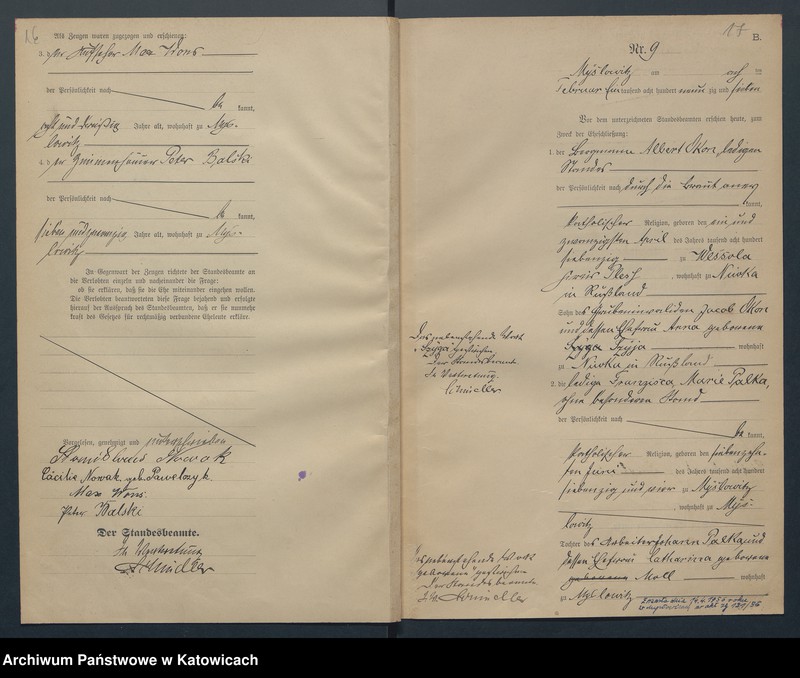 16
Als Zeugen waren zugezogen und erschienen:
3. der Kutscher Max Wons
der Persönlichkeit nach
be kannt,
acht und dreißig Jahre alt, wohnhaft zu Mys-
lowitz
4. der Peter Balski
der Persönlichkeit nach
be kannt,
sieben und zwanzig Jahre alt, wohnhaft zu Mys-
lowitz
In Gegenwart der Zeugen richtete der Standesbeamte an
die Verlobten einzeln und nacheinander die Frage:
ob sie erklären, daß sie die Ehe miteinander eingehen wollen.
Die Verlobten beantworteten diese Frage bejahend und erfolgte
hierauf der Ausspruch des Standesbeamten, daß er sie nunmehr
kraft des Gesetzes für rechtmäßig verbundene Eheleute erkläre.
Vorgelesen, genehmigt und unterschrieben
Nowak
Cäcilie Nowak geb. Pawelczyk
Max Wons.
Peter Balski
Der Standesbeamte.
In Vertretung
Schmidler
17
B.
Nr. 9
Myslowitz am acht ten
Februar Ein tausend acht hundert neun zig und sieben
Vor dem unterzeichneten Standesbeamten erschien heute, zum
Zweck der Eheschließung:
1. der Bergmann Albert Okon, ledigen
Standes
der Persönlichkeit nach durch die Braut aner
kannt,
katholischer Religion, geboren den ein und
zwanzigsten April des Jahres tausend acht hundert
siebenzig zu Wessola
Kreis Pless, wohnhaft zu Niwka
in Rußland
Sohn des Grubeninvaliden Jacob Okon
und dessen Ehefrau Anna geborene
Szyga Tzyja wohnhaft
zu Niwka in Rußland
2. die ledige Franzisca Marie Palka,
ohne besonderen Stand
der Persönlichkeit nach
be kannt,
katholischer Religion, geboren den siebenzehn-
ten Juni des Jahres tausend acht hundert
siebenzig und vier zu Myslowitz
, wohnhaft zu Mys-
lowitz
Tochter des Arbeiter Johann Palka und
dessen Ehefrau Catharina geborene
geborene Moll wohnhaft
zu Myslowitz
Das nebenstehende Wort
„Szyga“ gestrichen
Der Standesbeamte
In Vertretung.
Schmidler
Das nebenstehende Wort
„geborene“ gestrichen
Der Standesbeamte
I. V. Schmidler
Archiwum Państwowe w Katowicach